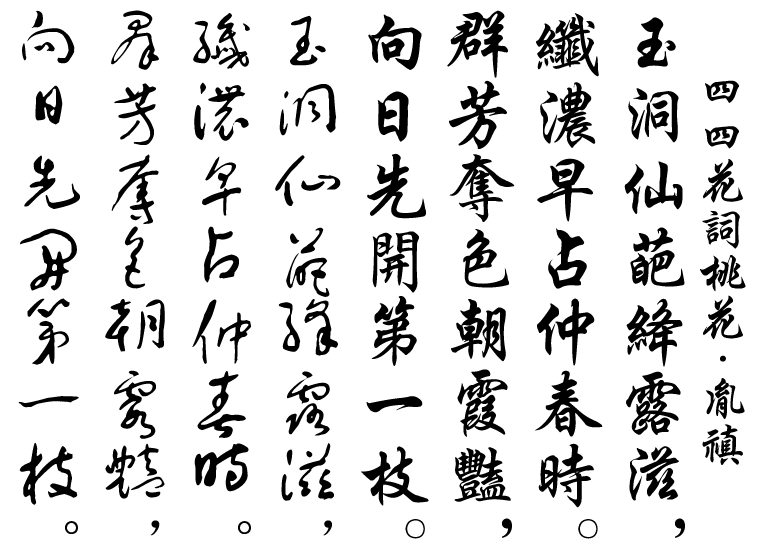 四四花詞桃花·胤禛
玉洞仙葩絳露滋，
纖濃早占仲春時。
群芳奪色朝霞豔，
向日先開第一枝。
玉洞仙葩絳露滋，
纖濃早占仲春時。
群芳奪色朝霞豔，
向日先開第一枝。